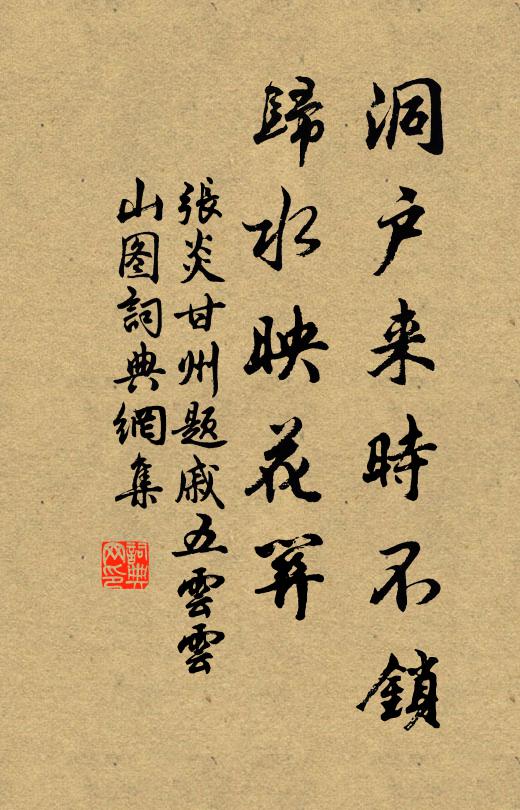 洞户来時不鎖
歸水映花關
張炎甘州題戚五雲雲
山图詞典網集
詞典网印